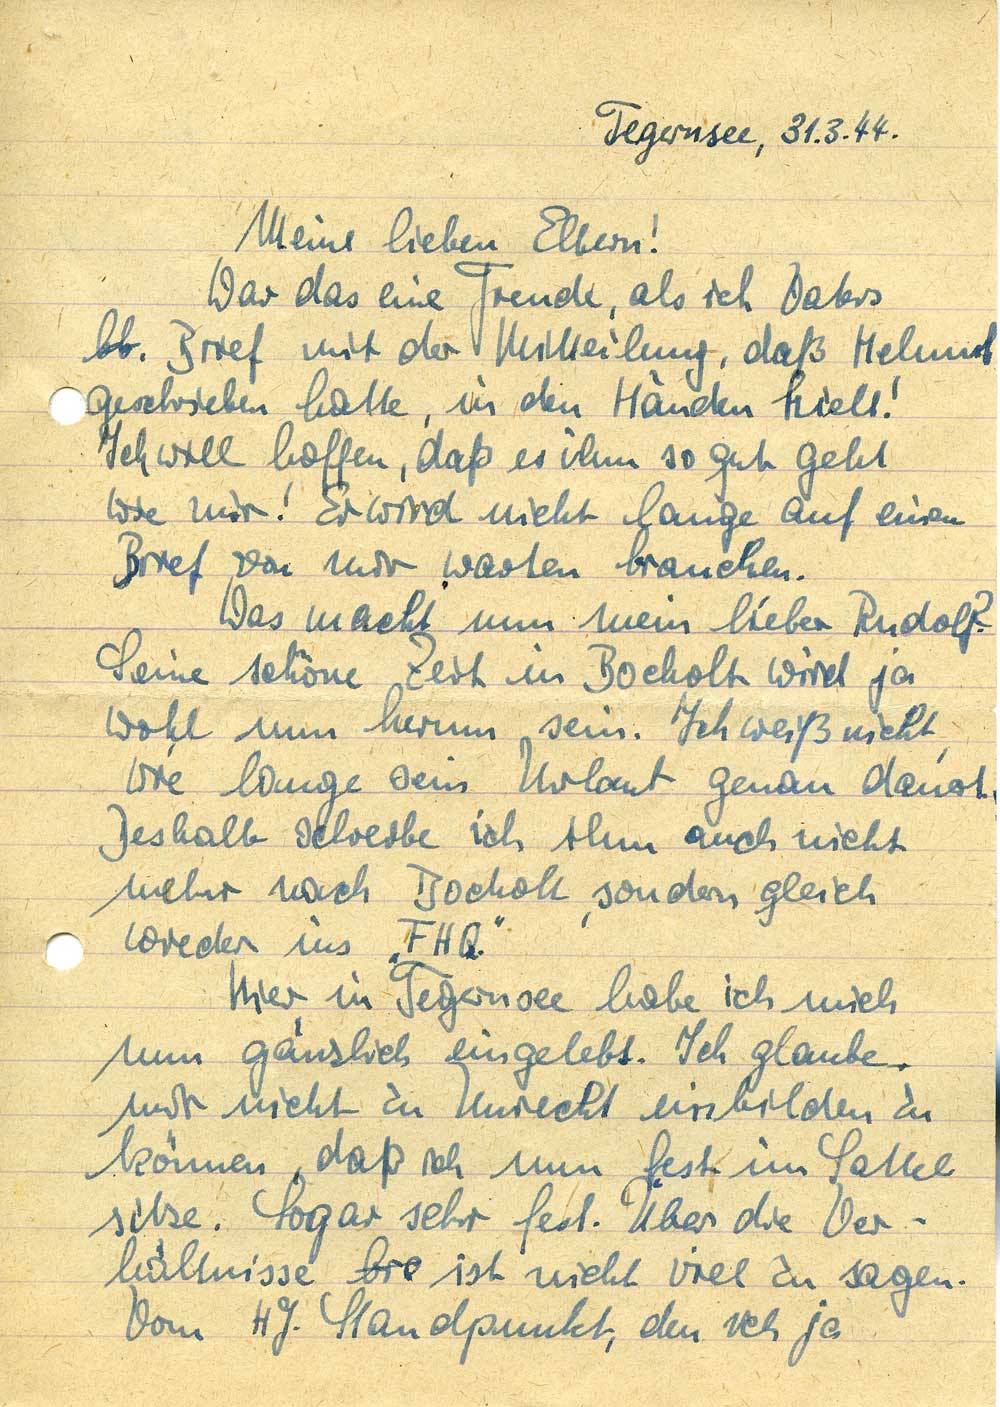 Tegernsee, 31.3.44.
Meine lieben Eltern!
War das eine Freude, als ich Vaters
lb. Brief mit der Mitteilung, daß Helmut
geschrieben hatte, in den Händen hielt!
Ich will hoffen, daß es ihm so gut geht
wie mir! Er wird nicht lange auf einen
Brief von mir warten brauchen.
Was macht nun mein lieber Rudolf?
Seine schöne Zeit in Bocholt wird ja
wohl nun herum sein. Ich weiß nicht,
wie lange sein Urlaub genau dauert.
Deshalb schreibe ich ihm auch nicht
mehr nach Bocholt, sondern gleich
wieder ins „FHQ."
Hier in Tegernsee habe ich mich
nun gänzlich eingelebt. Ich glaube
mir nicht zu Unrecht einbilden zu
können, daß ich nun fest im Sattel
sitze. Sogar sehr fest. Über die Ver-
hältnisse ist nicht viel zu sagen.
Vom HJ. Standpunkt, den ich ja